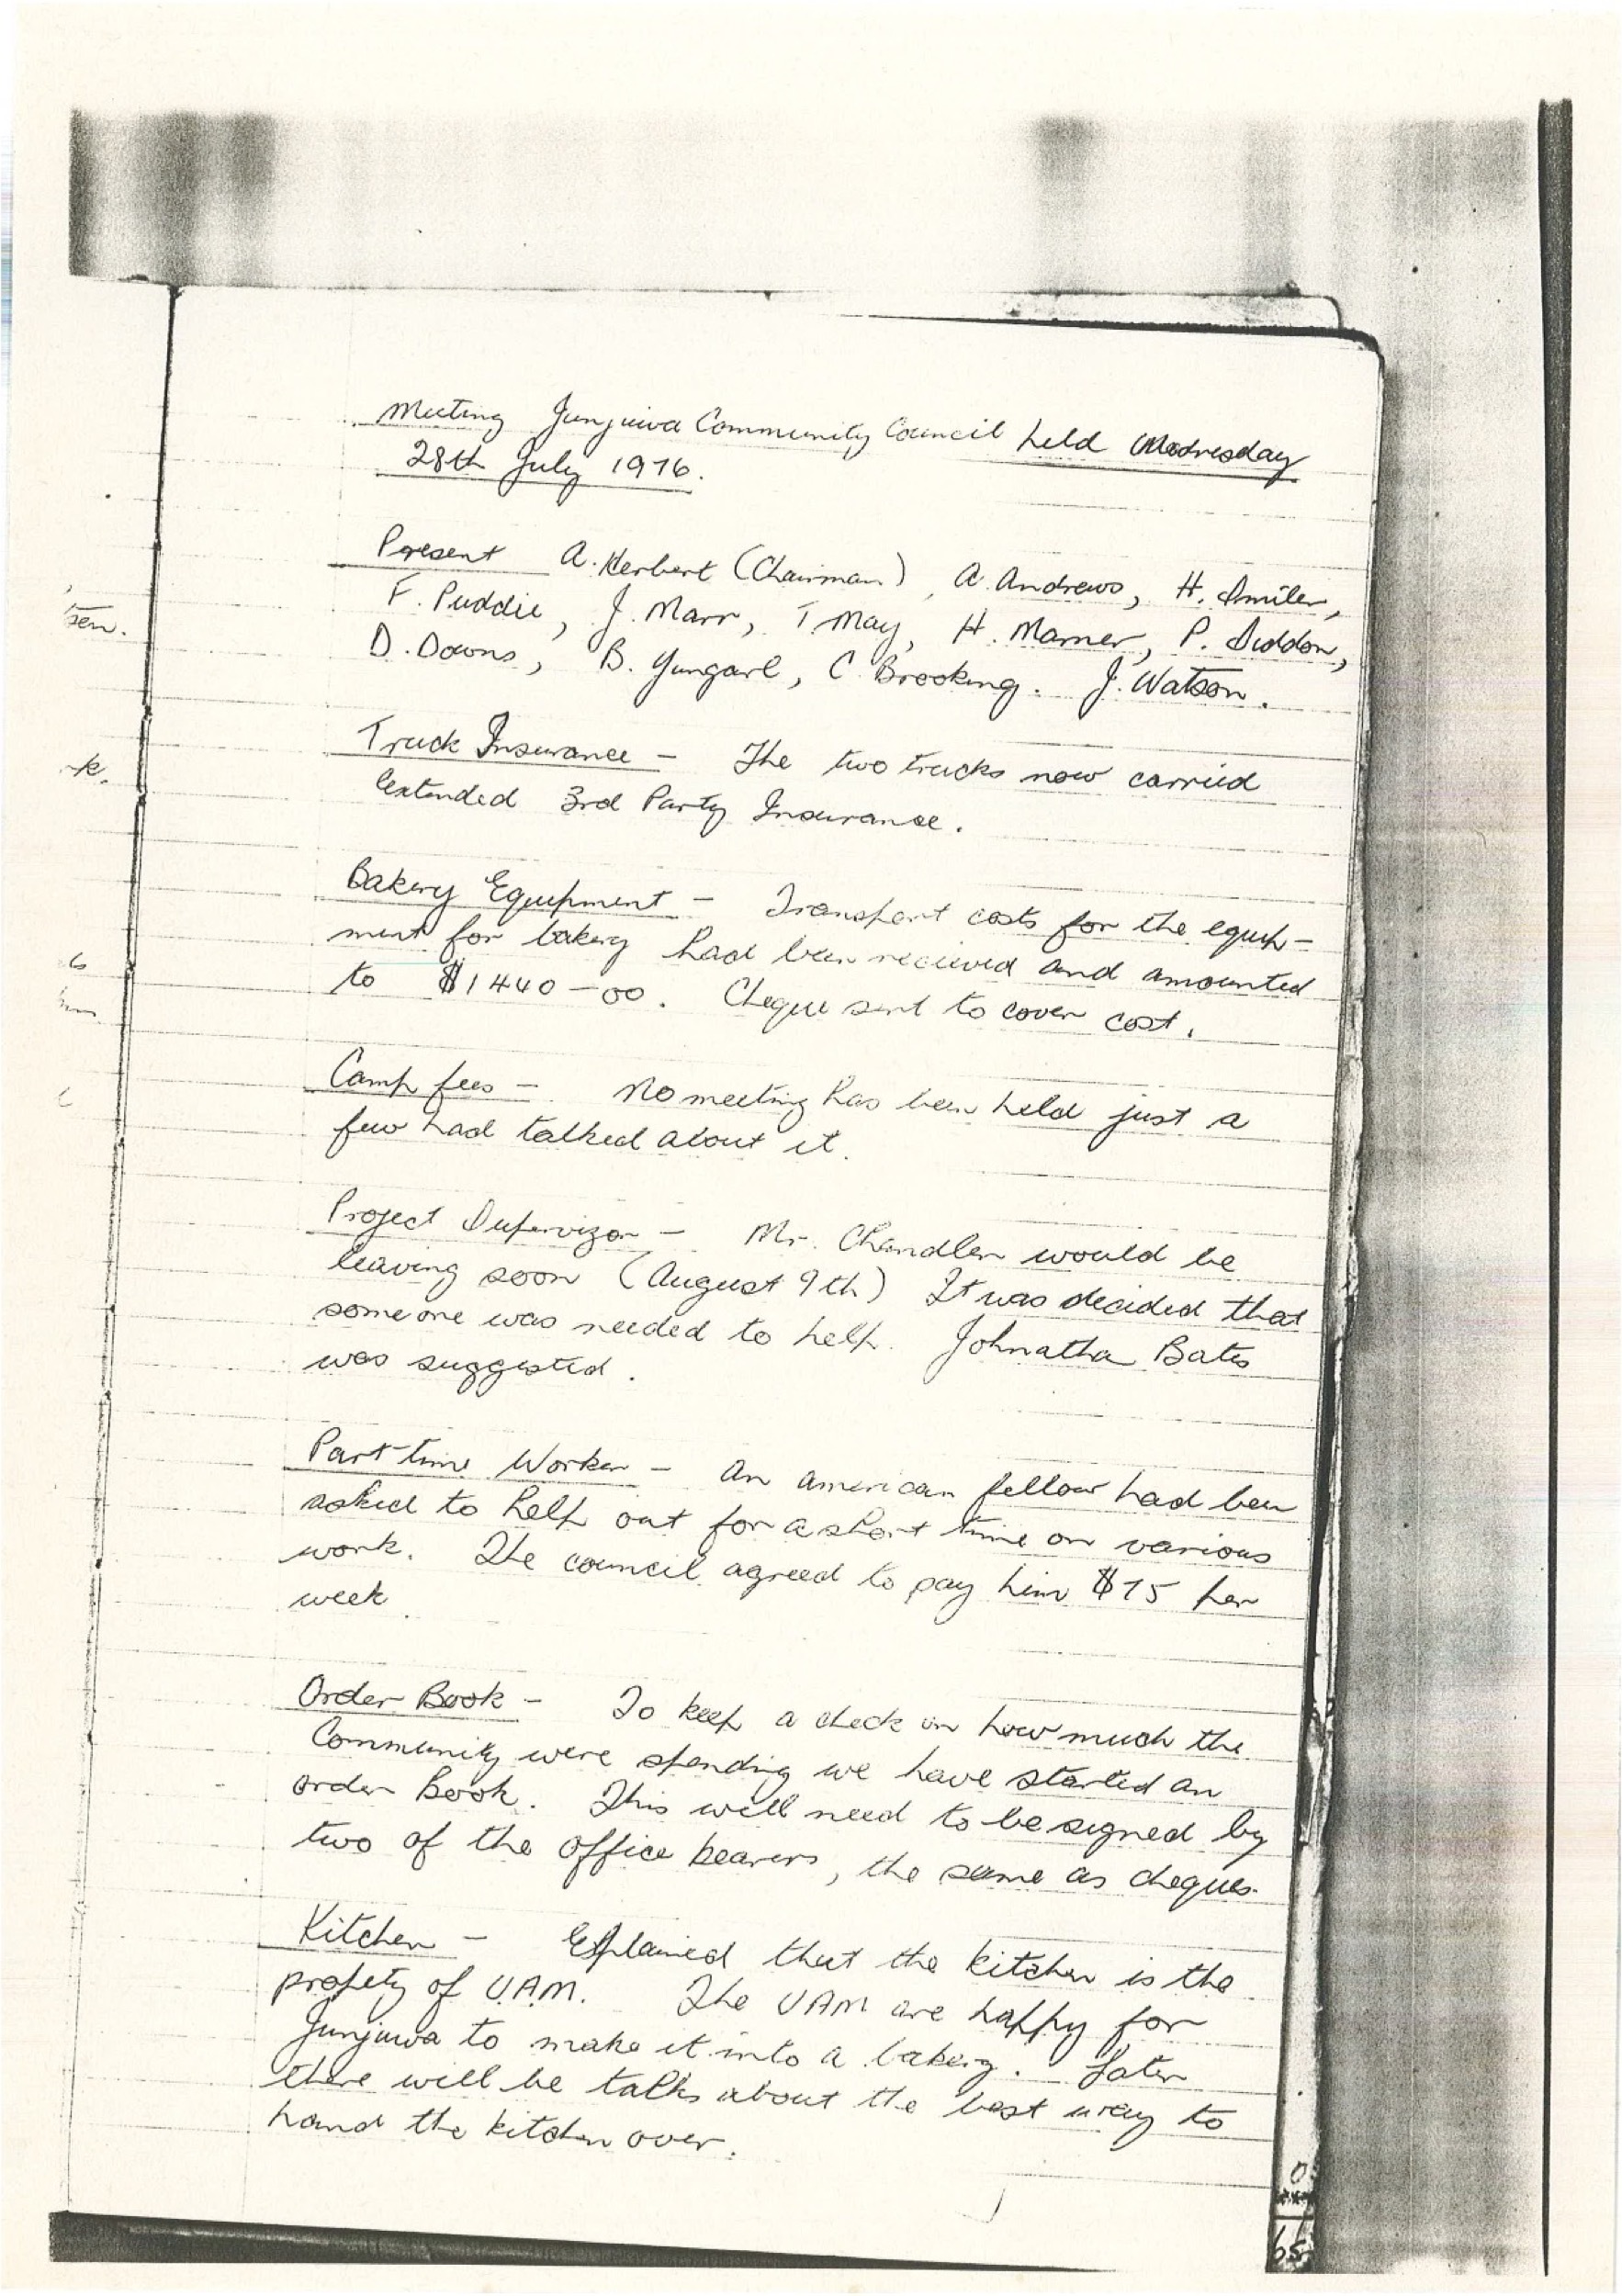 Meeting Junjuwa Community Council held Wednesday
28th July 1976.
Present A. Herbert (Chairman), A. Andrews, H. Smiler,
F. Puddie, J. Marr, T. May, H. Marner, P. Siddon,
D. Downs, B. Yungarl, C. Brooking. J. Watson.
Truck Insurance - The two trucks now carried
extended 3rd Party Insurance.
Bakery Equipment - Transport costs for the equip-
ment for bakery had been recieved and amounted
to $1440-00. Cheque sent to cover cost.
Camp fees - No meeting has been held just a
few had talked about it.
Project Supervizor - Mr. Chandler would be
leaving soon (August 9th) It was decided that
someone was needed to help. Johnatha Bates
was suggested.
Part-time Worker - An american fellow had been
asked to help out for a short time on various
work. The council agreed to pay him $75 per
week.
Order Book - To keep a check on how much the
Community were spending we have started an
order Book. This will need to be signed by
two of the office bearers, the same as cheques.
Kitchen - Explained that the kitchen is the
propety of U.A.M. The UAM are happy for
Junjuwa to make it into a bakery. Later
there will be talks about the best way to
hand the kitchen over.